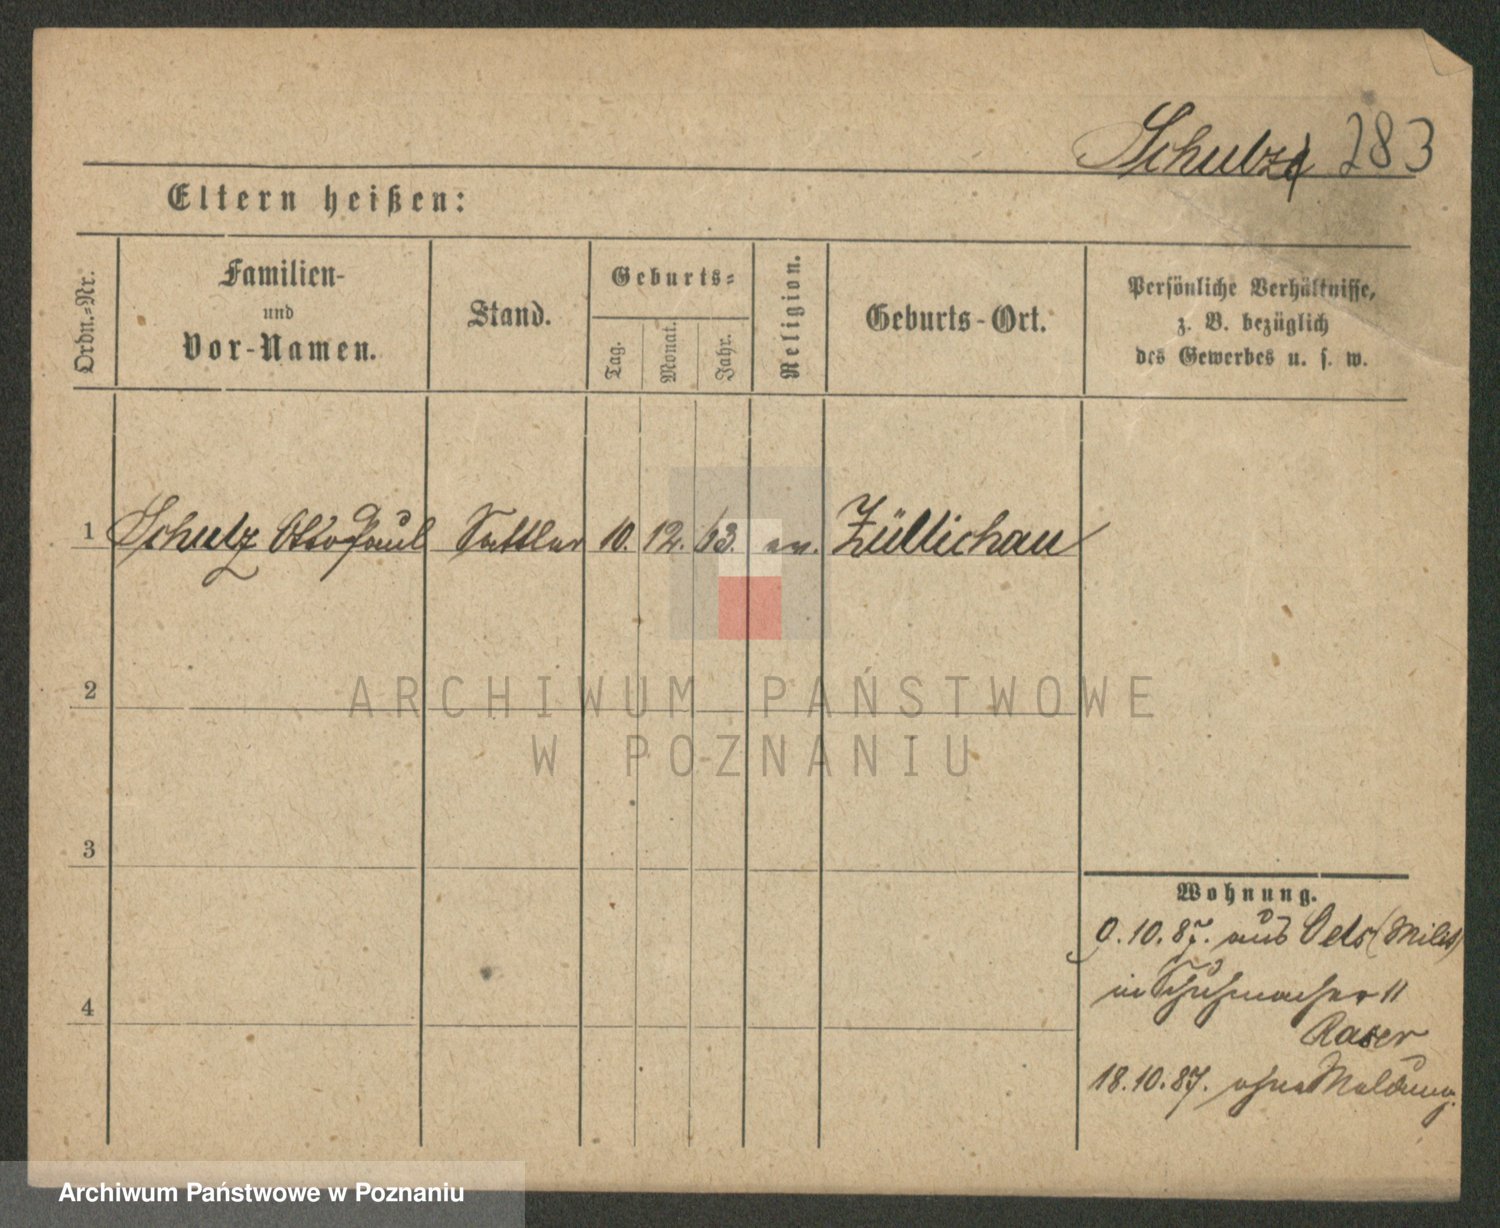 Schulz 283
Eltern heißen:
Ordn.-Nr.
Familien-
und
Vor-Namen.
Stand.
Geburts-
Tag.
Monat.
Jahr.
Religion.
Geburts-Ort.
Persönliche Verhältnisse,
z. B. bezüglich
des Gewerbes u. s. w.
1 Schulz Otto Paul Sattler 10. 12. 63. ev. Züllichau
2
ARCHIWUM PAŃSTWOWE
W POZNANIU
3
4
Wohnung.
9.10.87. aus Oels (Milit)
in Schuhmacher 11
Raser
18.10.87. ohne Meldung.
Archiwum Państwowe w Poznaniu